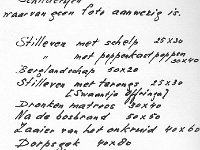 waarvan geen foto aanwezig is.
Stilleven met schelp 25x30
" met poppenkastpoppen
30x40
Berglandschap 50x20
Stilleven met torenges 25x30
[Swaantje Offringa]
Dronken matroos 30x40
Na de bosbrand 50x50
Zaaier van het onkruid 40x60
Dorpsgek 40x80